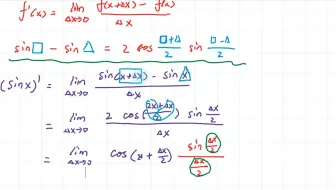 f'(x) = lim Δx→0 f(x+Δx) - f(x) / Δx
sin□ - sin△ = 2 cos □+△/2 sin □-△/2
(sinx)' = lim Δx→0 sin(x+Δx) - sinx / Δx
= lim Δx→0 2 cos(2x+Δx/2) sin Δx/2 / Δx
= lim Δx→0 cos(x + Δx/2) sin Δx/2 / Δx/2